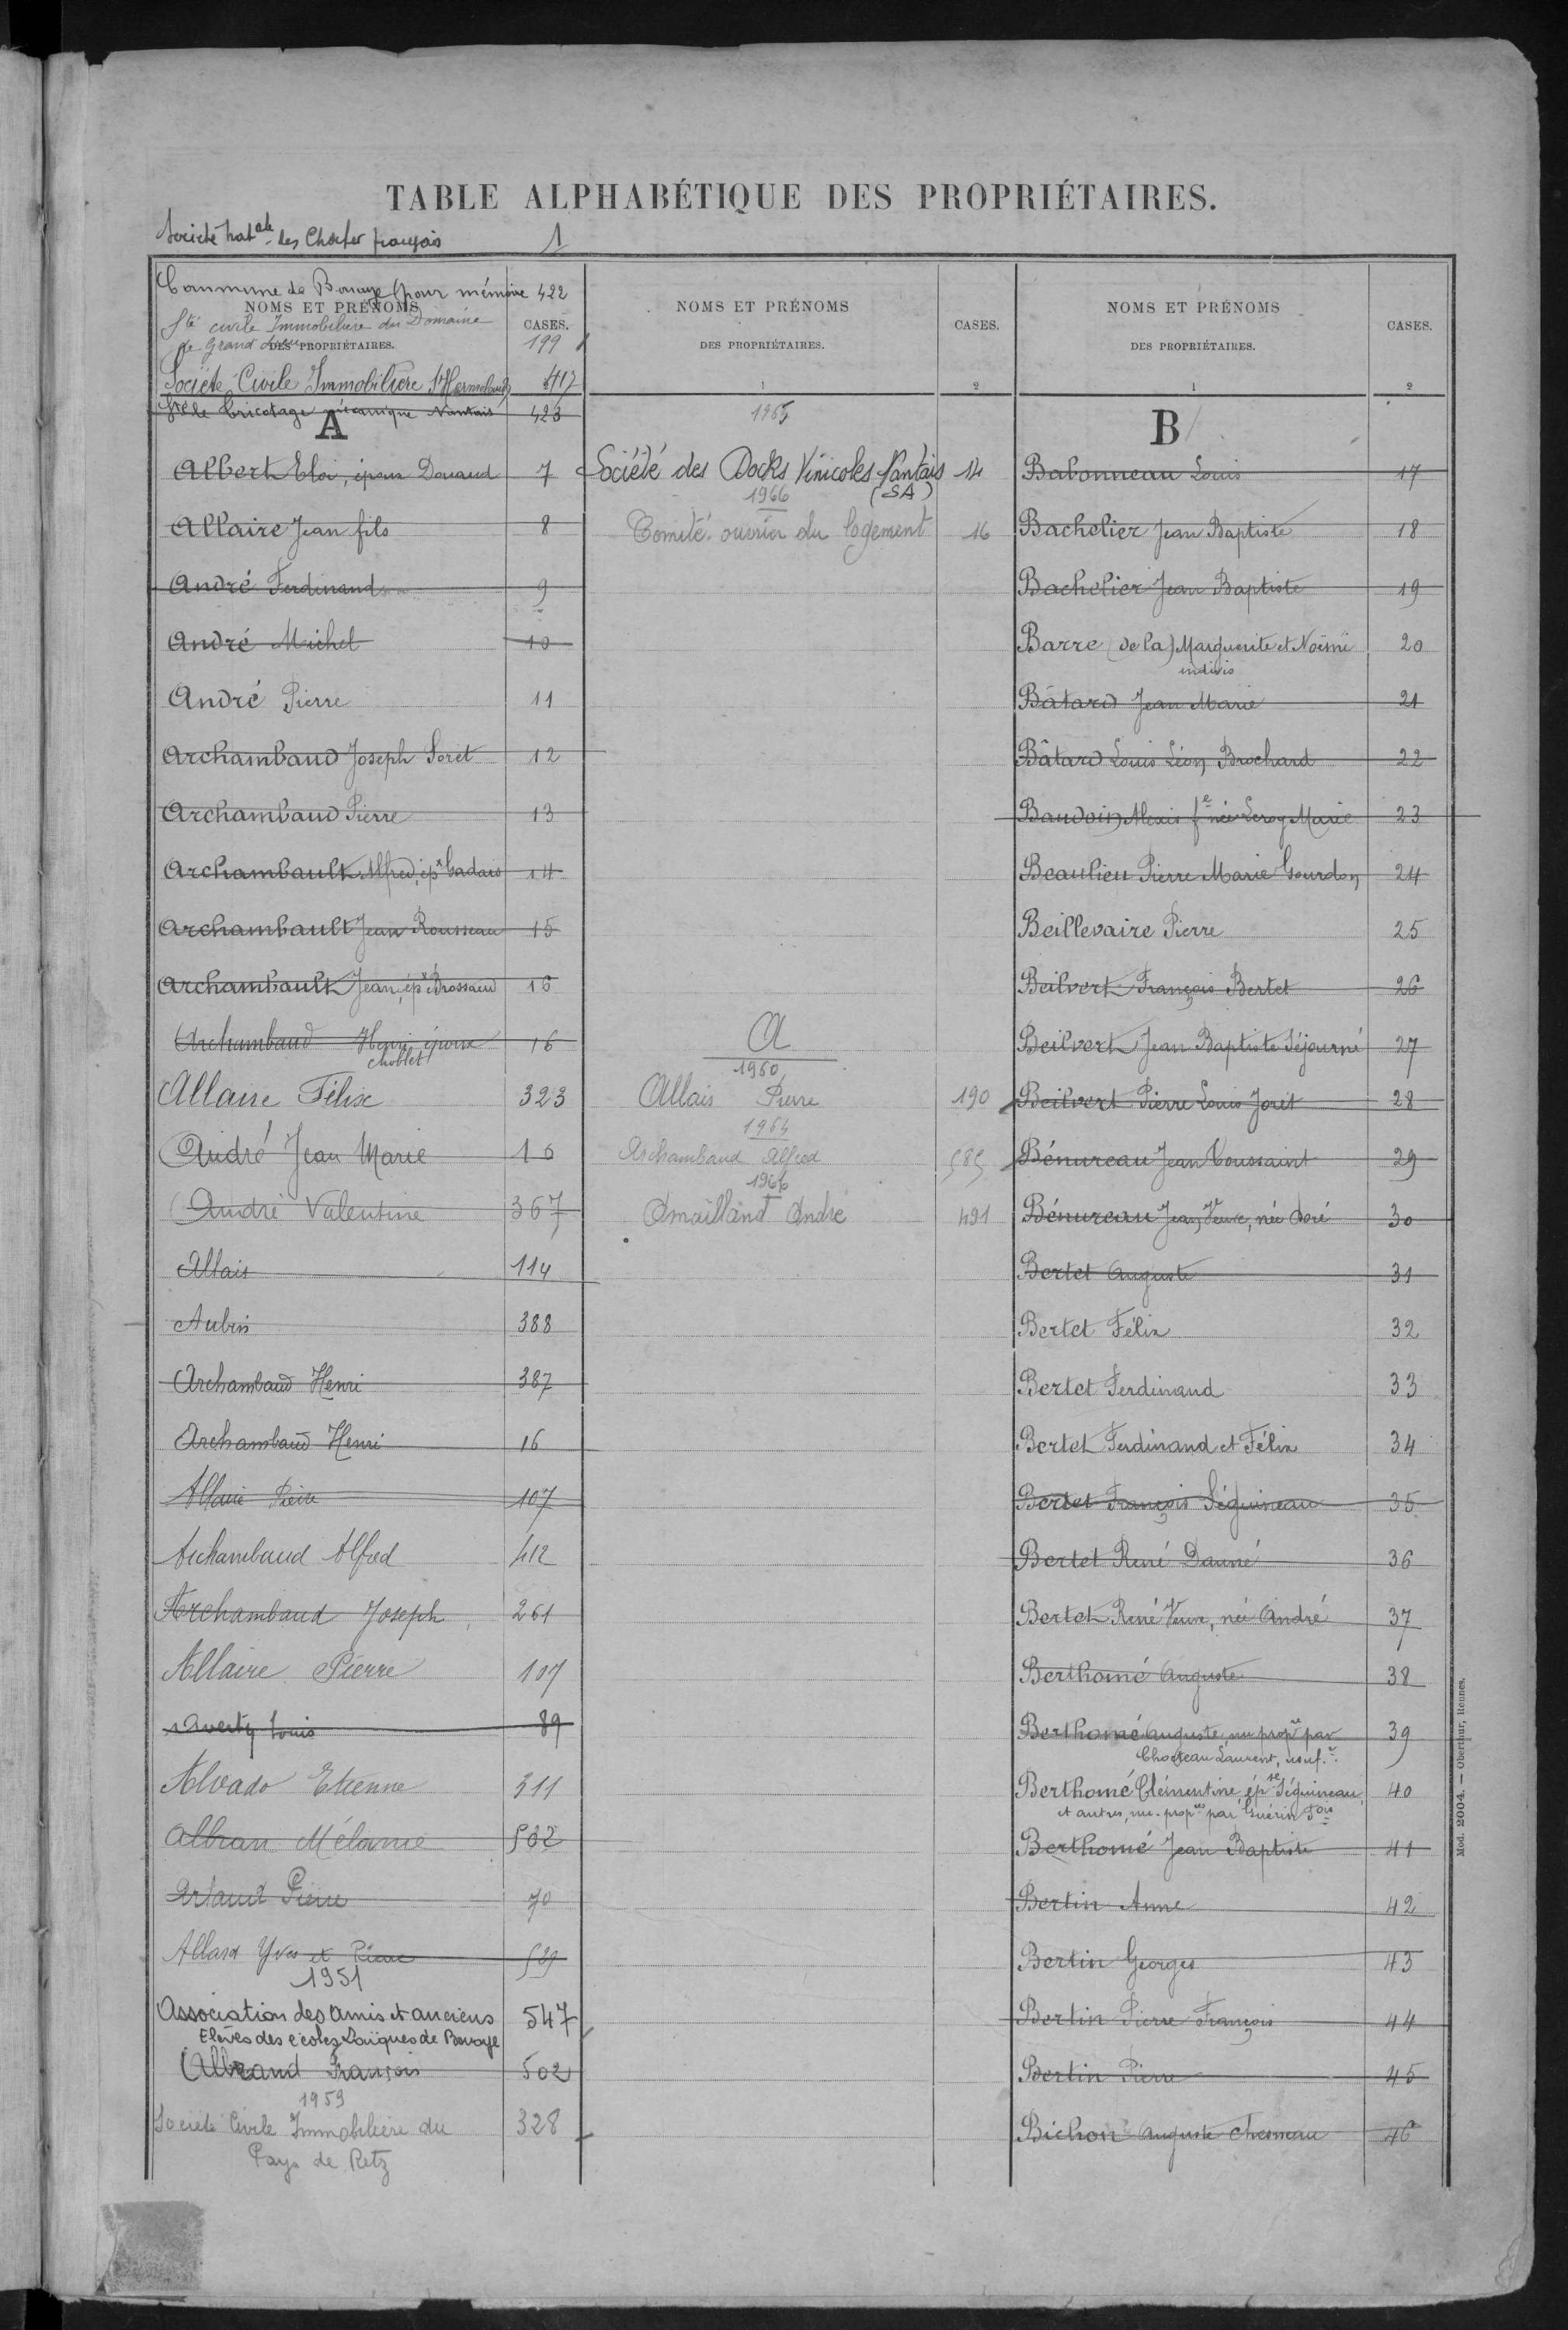 TABLE ALPHABÉTIQUE DES PROPRIÉTAIRES.
Société Nat.ale des Ch de fer français 1
Commune de Bouaye (pour mémoire 422
NOMS ET PRÉNOMS
DES PROPRIÉTAIRES.
CASES.
Sté civile Immobilière du Domaine
de Grand 199
Société Civile Immobilière St Hermeland 417
Sté de Tricotage mécanique Nantais 423
A
Albert Eloi, époux Douaud 7
Allaire Jean fils 8
André Ferdinand 9
André Michel 10
André Pierre 11
Archambaud Joseph Loret 12
Archambaud Pierre 13
Archambault Alfred, épx Cadais 14
Archambault Jean Rousseau 15
Archambault Jean, épx Brossaud 16
Archambaud Henri époux 16
Choblet
Allaire Félix 323
André Jean Marie 16
André Valentine 367
Allais 114
Aubin 388
Archambaud Henri 387
Archambaud Henri 16
Allaire Pierre 107
Archambaud Alfred 412
Archambaud Joseph 261
Allaire Pierre 107
Averty Louis 89
Alvado Etienne 311
Albran Mélanie 502
Artaud Pierre 70
Allard Yves et Pierre 529
1951
Association des Amis et anciens 547
Elèves des écoles Laïques de Bouaye
Albrand François 502
1959
Société Civile Immobilière du 328
Pays de Retz
NOMS ET PRÉNOMS
DES PROPRIÉTAIRES.
CASES.
1 2
1965
Société des Docks Vinicoles Nantais 14
(SA)
1966
Comité ouvrier du logement 16
A
1960
Allais Pierre 190
1964
Archambaud Alfred 585
1966
Amailland André 491
NOMS ET PRÉNOMS
DES PROPRIÉTAIRES.
CASES.
1 2
B
Babonneau Louis 17
Bachelier Jean Baptiste 18
Bachelier Jean Baptiste 19
Barre (de la) Marguerite et Noëmi 20
indivis
Bâtard Jean Marie 21
Bâtard Louis Léon Brochard 22
Baudoin Alexis fe née Leroy Marie 23
Beaulieu Pierre Marie Gourdon 24
Beillevaire Pierre 25
Beilvert François Bertet 26
Beilvert Jean Baptiste Séjourné 27
Beilvert Pierre Louis Joret 28
Bénureau Jean Toussaint 29
Bénureau Jean, Veuve, née Doré 30
Bertet Auguste 31
Bertet Félix 32
Bertet Ferdinand 33
Bertet Ferdinand et Félix 34
Bertet François Séguineau 35
Bertet René Dauné 36
Bertet René Veuve, née André 37
Berthomé Auguste 38
Berthomé Auguste, nu propre par 39
Laurent, usuf.
Berthomé Clémentine, épse Séguineau 40
et autres, nu. propres par Guérin Fois
Berthomé Jean Baptiste 41
Bertin Anne 42
Bertin Georges 43
Bertin Pierre François 44
Bertin Pierre 45
Bichon Auguste Chesneau 46
Mod. 2004. — Oberthur, Rennes.